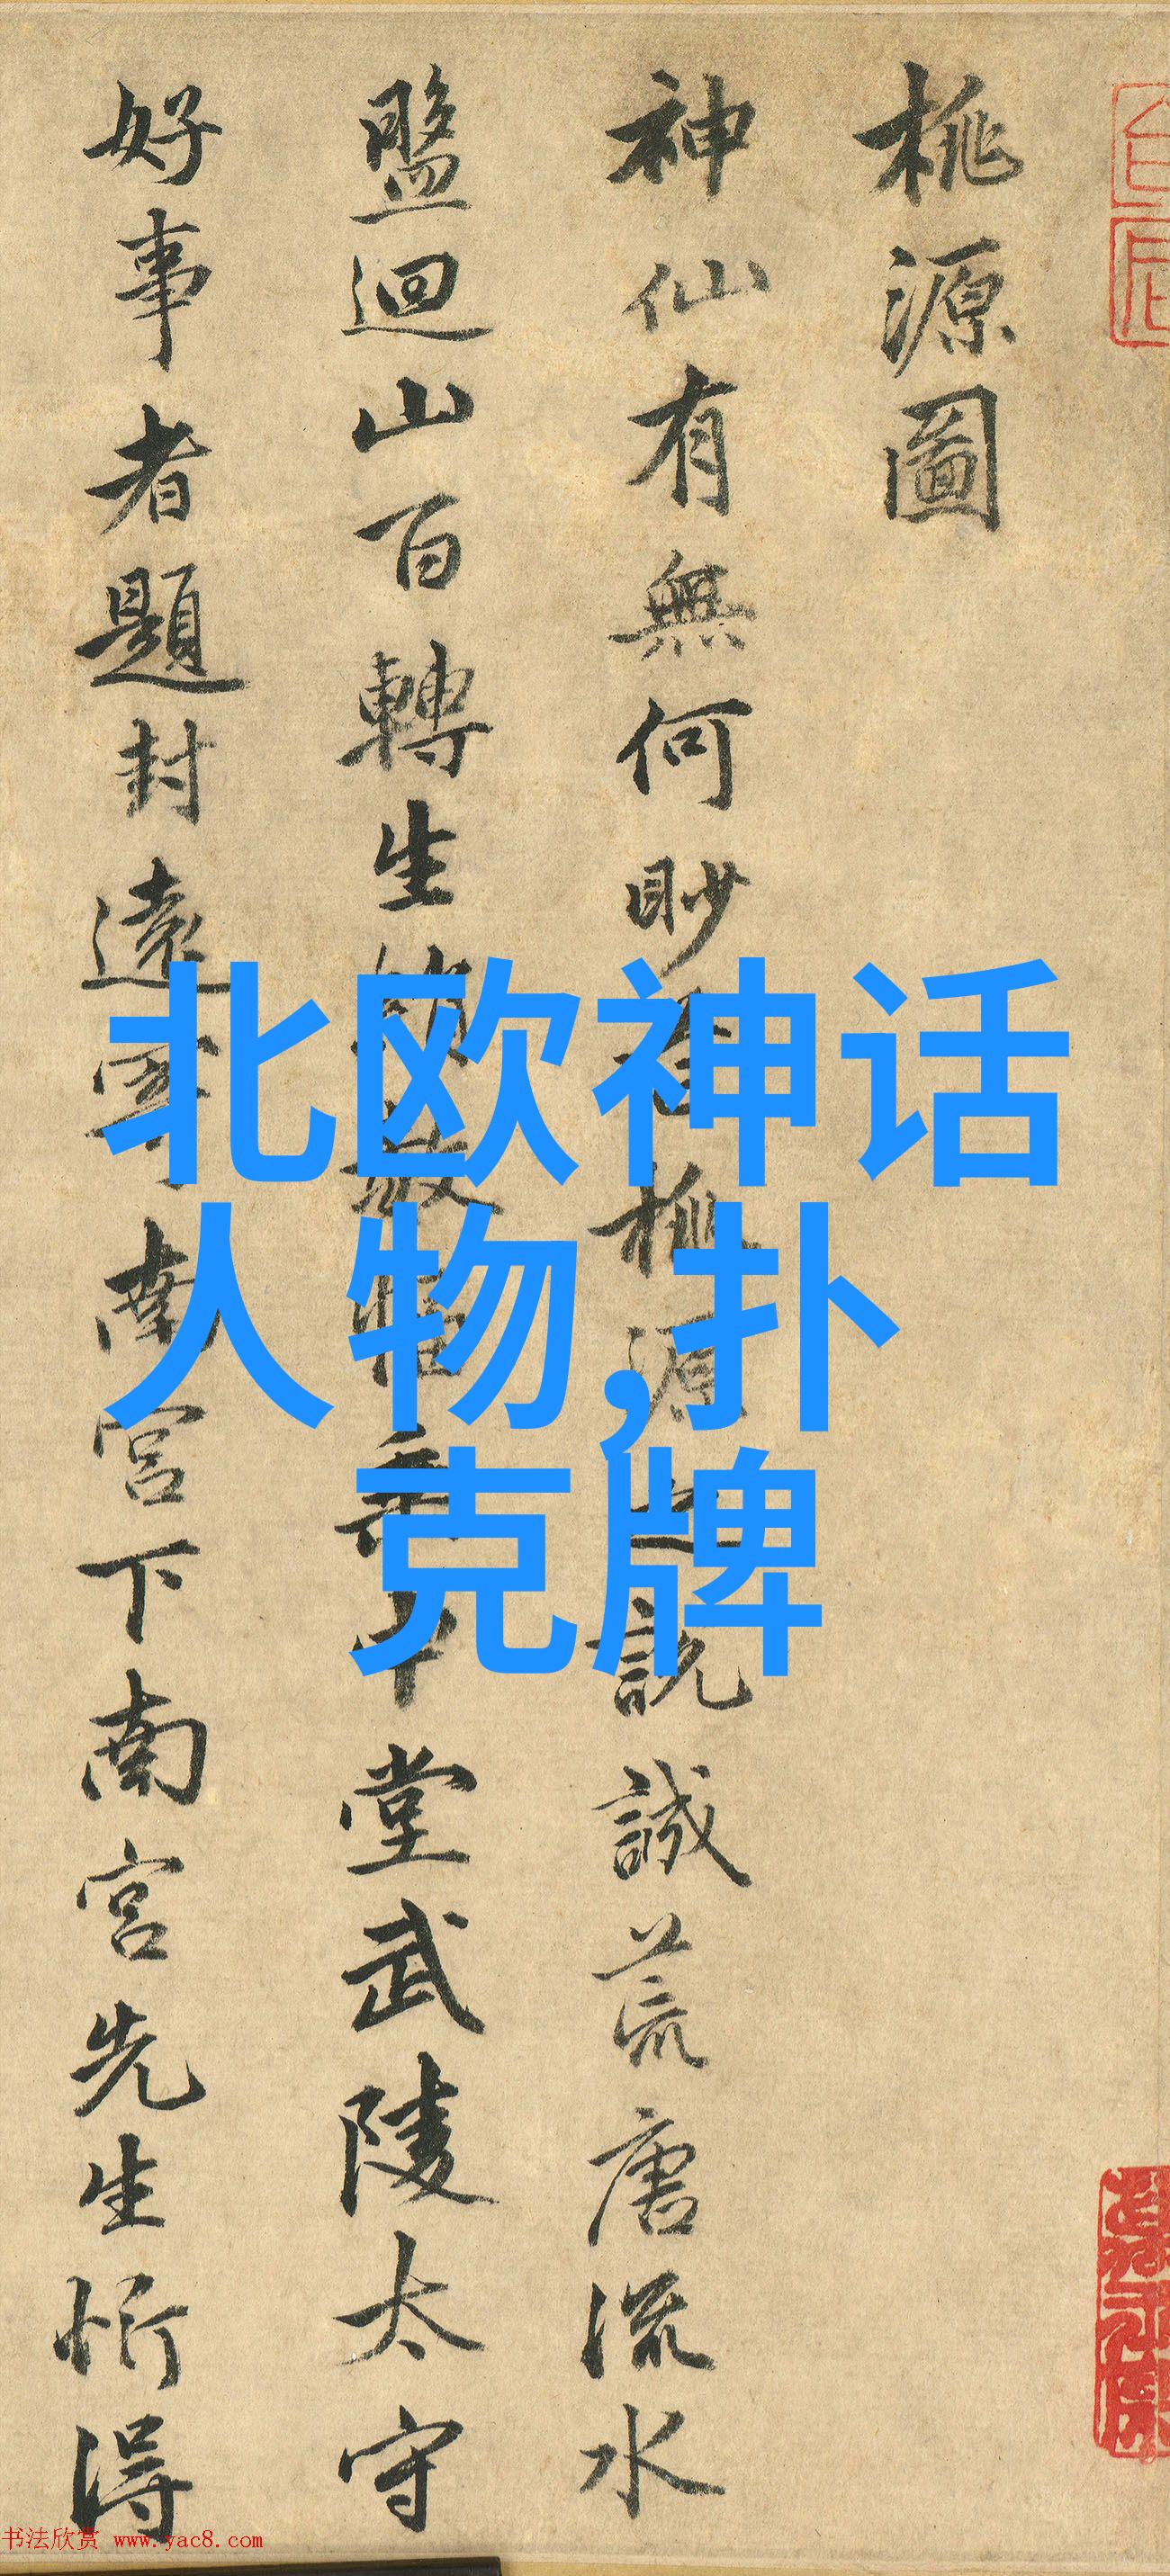 桃源圖
神仙有無何眇
說誠荒唐流水
盤迴山百轉生
堂武陵太守
好事者題封遠
南宮下南宮先生忻得
北欧神话
人物,扑
克牌
书法欣赏 www.yac8.com